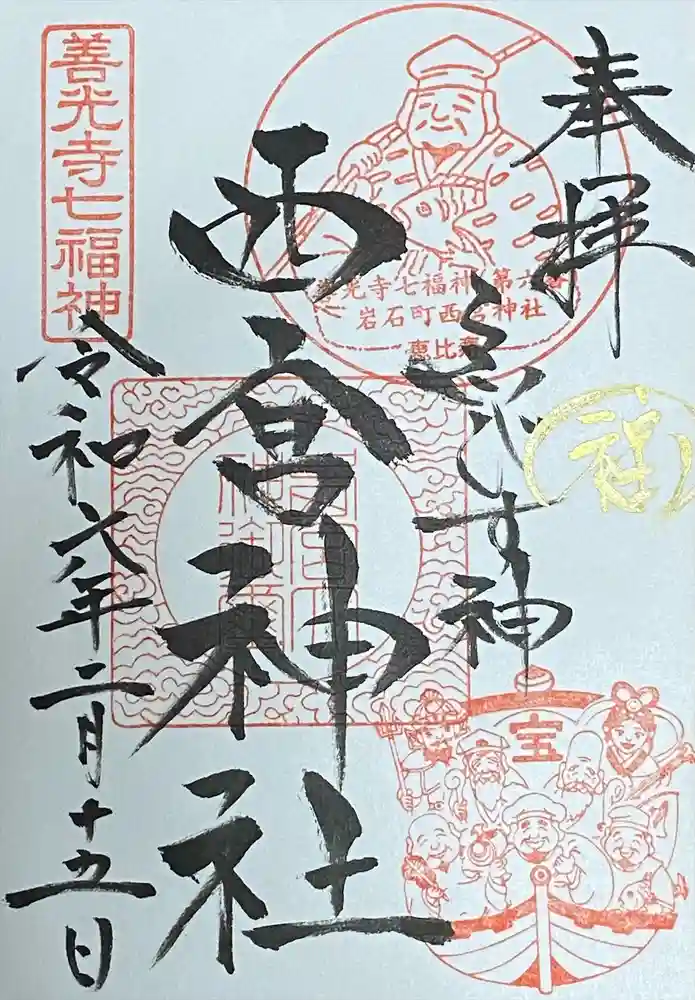 奉拝
ゑびす神
西宮神社
令和六年二月十五日
善光寺七福神
善光寺七福神 第六番
岩石町西宮神社
恵比寿
福
宝